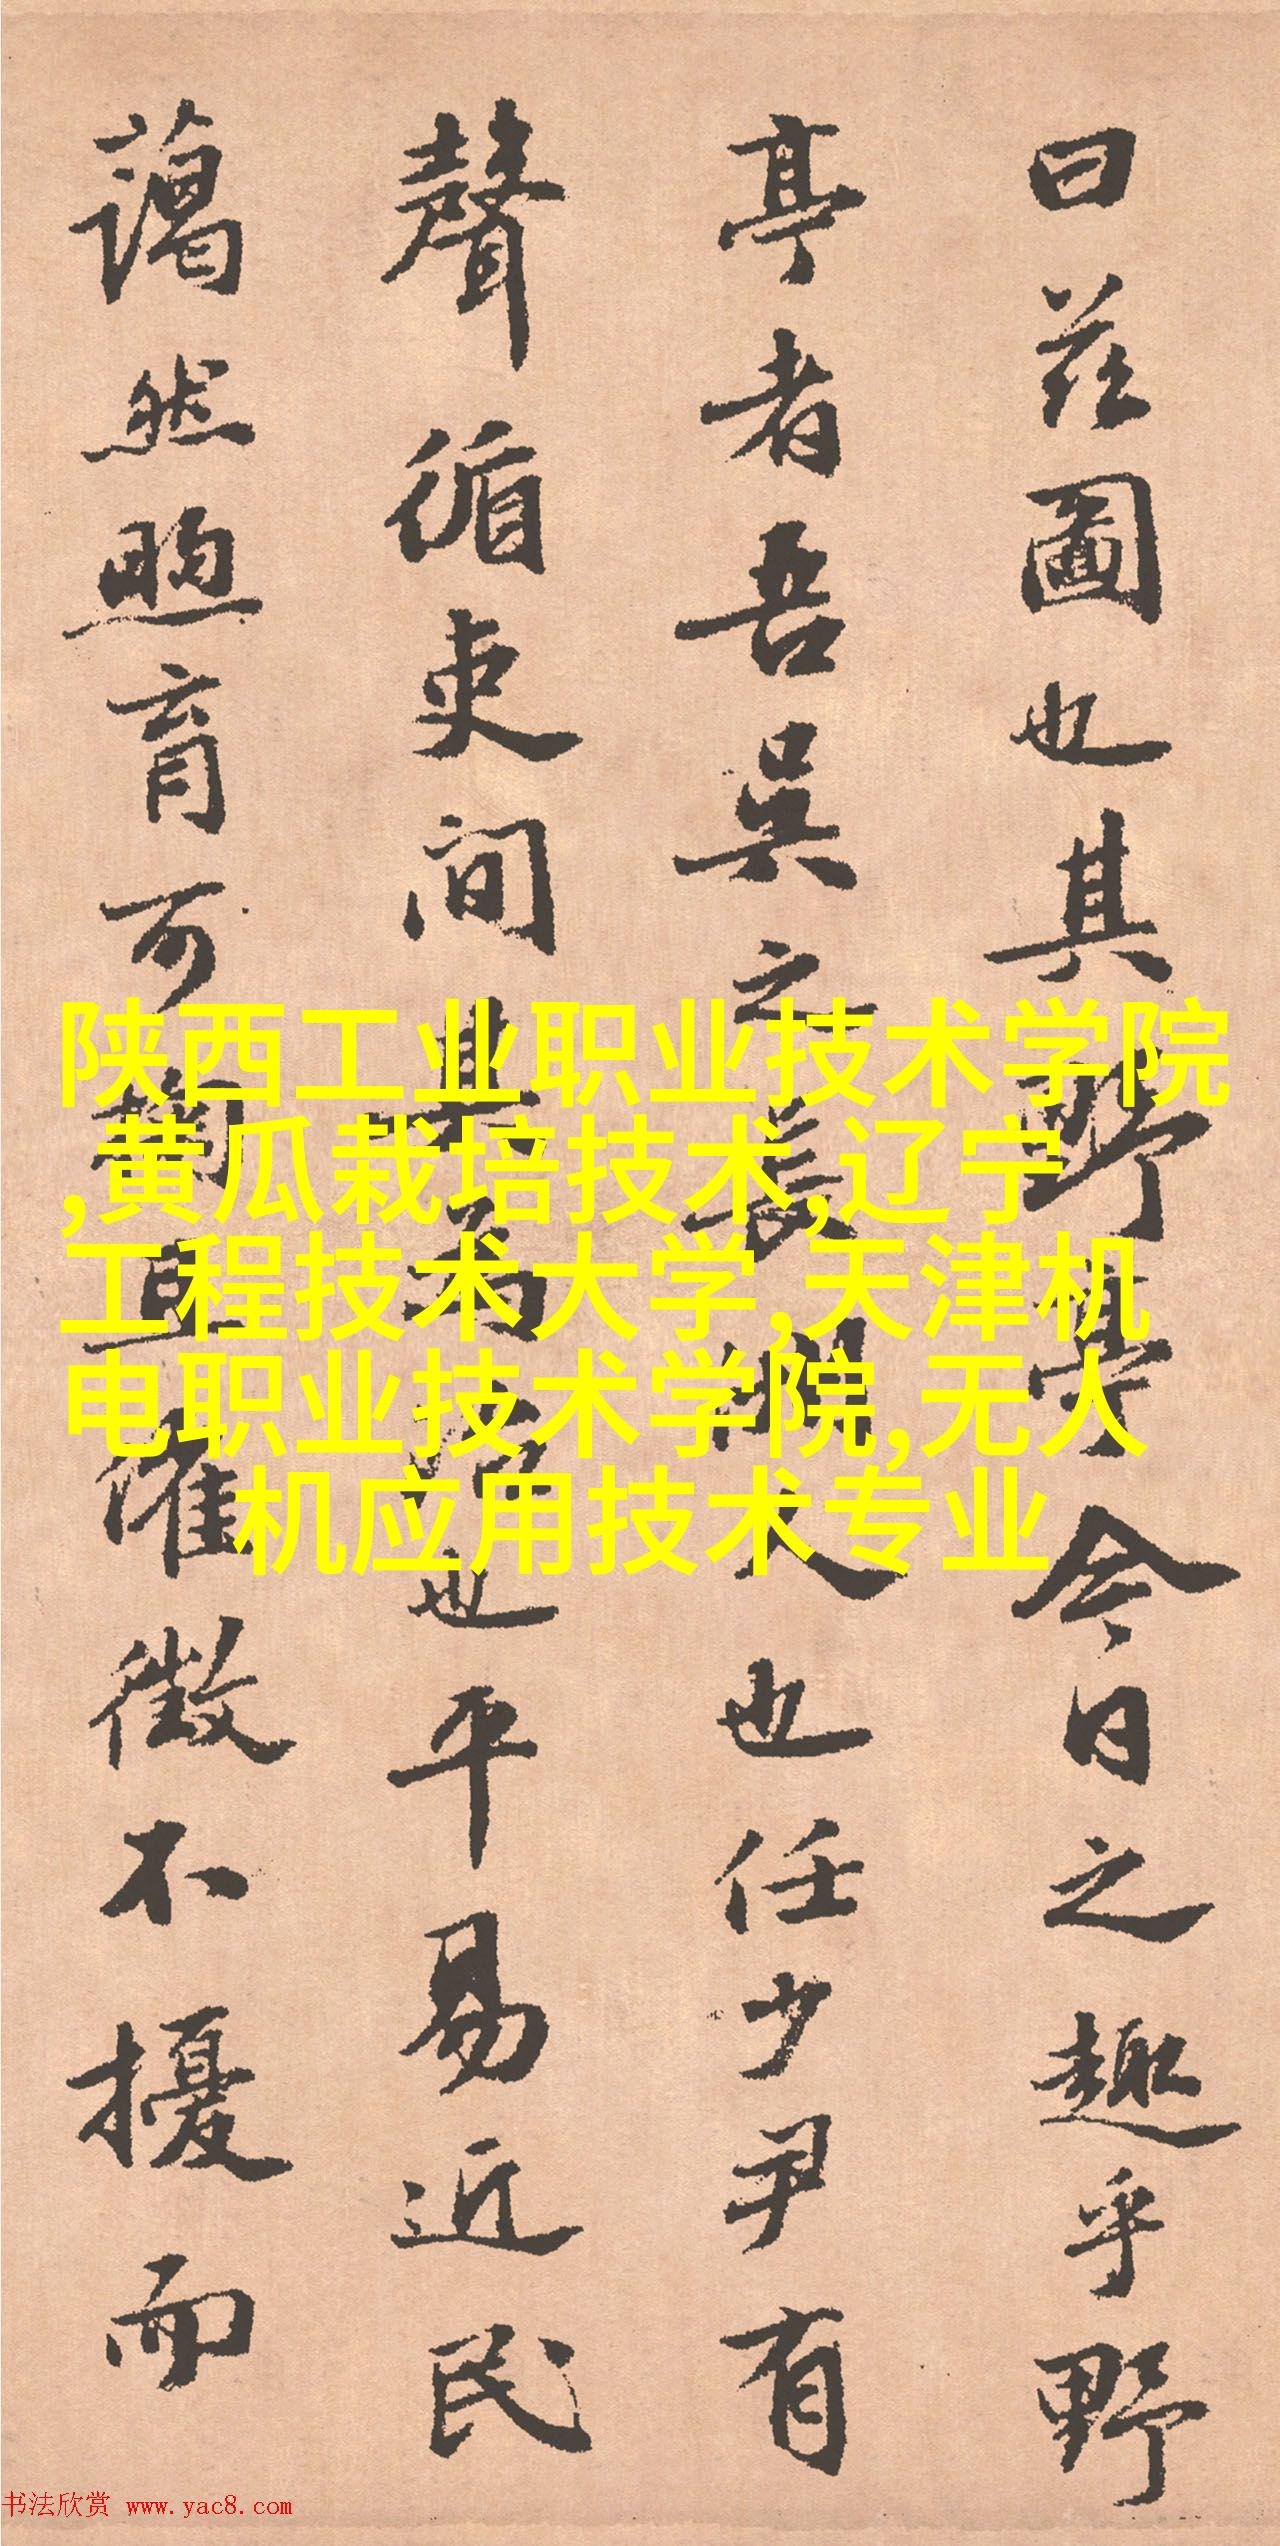 曰茲圖也其野亭今日之趣乎野
亭者吾吳之長洲人也任少尹有
聲循吏间其為治也平易近民
藹然煦育可
催徵不擾而
陕西工业职业技术学院
,黄瓜栽培技术,辽宁
工程技术大学,天津机
电职业技术学院,无人
机应用技术专业
书法欣赏 www.yac8.com